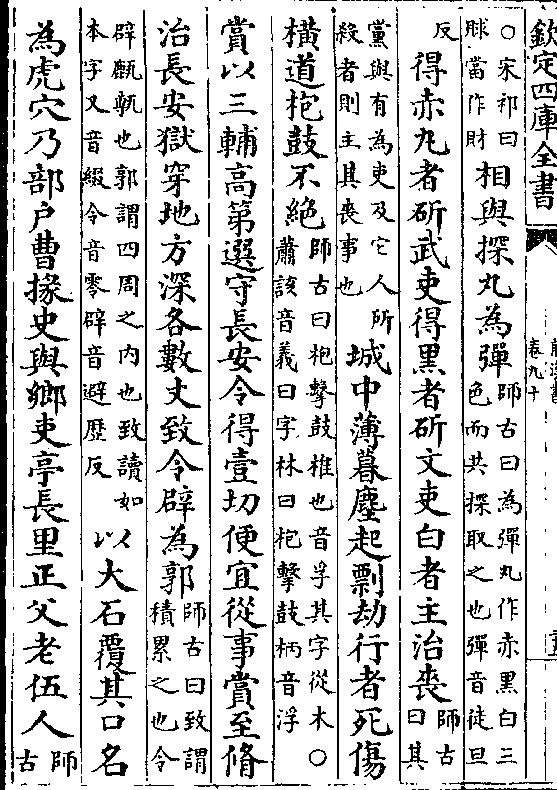 欽定四庫全書
卷九十
○宋祁曰賕當作財相與探丸為彈師古曰為彈丸作赤黑白三色而共探取之也彈音徒旦
反得赤丸者斫武吏得黑者斫文吏白者主治喪師古曰其
黨與有為吏及它人所殺者則主其喪事也城中薄暮塵起剽劫行者死傷
橫道枹鼓不絶師古曰枹擊鼓椎也音孚其字從木○蕭該音義曰字林曰枹擊鼓柄音浮
賞以三輔高第選守長安令得壹切便宜從事賞至脩
治長安獄穿地方深各數丈致令辟為郭師古曰致謂積累之也令
辟甋甎也郭謂四周之内也致讀如本字又音綴令音零辟音避歷反以大石覆其口名
為虎穴乃部户曹掾史與鄉吏亭長里正父老伍人師古